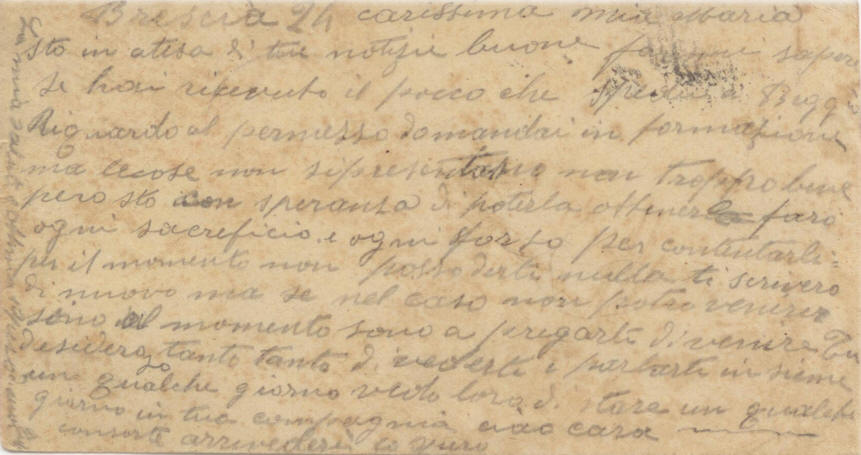 Brescia 24 carissima mia Maria
sto in atesa di tue notizie buone sapere
se hai ricevuto il pacco che
Riguardo al permesso domandai in formazione
ma lecose non sipresentano non troppo bene
pero sto con speranza di poterla ottenere faro
ogni sacreficio e ogni sforso per contentarti
per il momento non posso derti nulla ti scrivero
di nuovo ma se nel caso non potro venire
sono al momento sono a pregarti di venire Tu
desidero tanto tanto di vederti e parlarti in sieme
un qualche giorno vedo lora di stare un qualche
giorno in tua compagnia ciao cara
consorte arrivederci
la mia salute